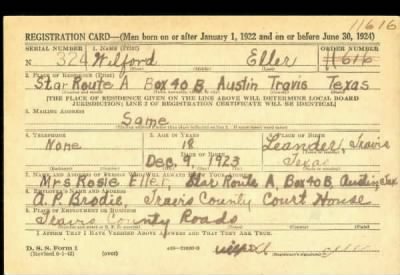 11616
REGISTRATION CARD—(Men born on or after January 1, 1922 and on or before June 30, 1924)
SERIAL NUMBER 1. NAME (Print) ORDER NUMBER
N 324 Wilford Eller 11616
2. PLACE OF RESIDENCE (Print)
Star Route A Box 40 B. Austin Travis Texas
[THE PLACE OF RESIDENCE GIVEN ON THE LINE ABOVE WILL DETERMINE LOCAL BOARD
JURISDICTION; LINE 2 OF REGISTRATION CERTIFICATE WILL BE IDENTICAL]
3. MAILING ADDRESS
Same
4. TELEPHONE 5. AGE IN YEARS 6. PLACE OF BIRTH
None 18 Leander, Travis
DATE OF BIRTH
Dec, 9, 1923 Texas
7. NAME AND ADDRESS OF PERSON WHO WILL ALWAYS KNOW YOUR ADDRESS
Mrs Rosie Eller, Star Route A, Box 40B, Austin, Tex
8. EMPLOYER'S NAME AND ADDRESS
A. P. Brodie, Travis County Court House
9. PLACE OF EMPLOYMENT OR BUSINESS
Travis County Roads
I AFFIRM THAT I HAVE VERIFIED ABOVE ANSWERS AND THAT THEY ARE TRUE.
D. S. S. Form 1
(Revised 6-1-42) (over)
Eller